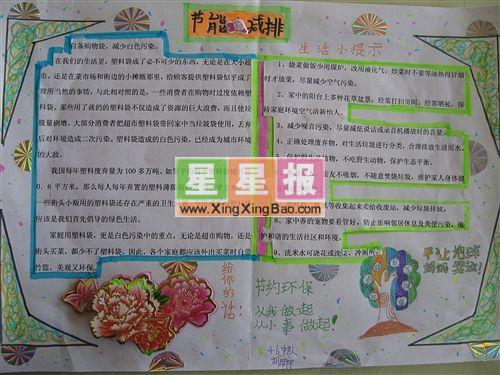 节能减排
自备购物袋，减少白色污染。
在我们的生活里，塑料袋成了必不可少的东西，无论是在大小超
市，还是在菜市场和街边的小摊贩那里，给顾客提供塑料袋似乎成了
理所当然的事情，与此相对照的是，一些消费者在购物时过度依赖塑
料袋，那些用了就扔的塑料袋不仅造成了资源的巨大浪费，而且使垃
圾量剧增。大部分消费者把超市塑料袋带回家中当垃圾袋使用，丢弃
后对环境造成二次污染，塑料袋造成的白色污染，已经成为城市环境
的大敌。
我国每年塑料废弃量为100多万吨，
0.6平方米，那么每人每年弃置的塑料薄
些街头小贩用的塑料袋还存在严重的卫生
应该是我们首先倡导的绿色生活。
家庭用塑料袋，更是白色污染中的重点，无论是超市购物，还是
街头买菜，都少不了塑料袋，因此，各个家庭都应该外出买菜时自带
竹篮，美观又环保。
生活小提示
1、烧菜做饭少用煤炉，改用液化气，炒菜时不要等油热得冒烟
时才放菜，尽量减少空气污染。
2、家中的阳台上多种花草盆景，经常打扫房间，经常晒被，保
持家庭环境空气清新怡人。
3、减少噪音污染，尽量减低说话或录音机播放时的音量。
4、正确处理废弃物，对生活垃圾进行分类，合理排放生活用水。
不吃野生动物，保护生态平衡。
不随意焚烧垃圾，维护家人身体健
收集起来卖给收废站，减少垃圾排放。
8、家中养的宠物要看管好，防止影响邻居休息及粪便污染，维
护和谐的生活社区和环境。
9、洗米水可浇花或洗
星星报
www.XingXingBao.com
给你的话：
节约环保
从我做起
从小事做起！
马上地球
妈妈哭泣！